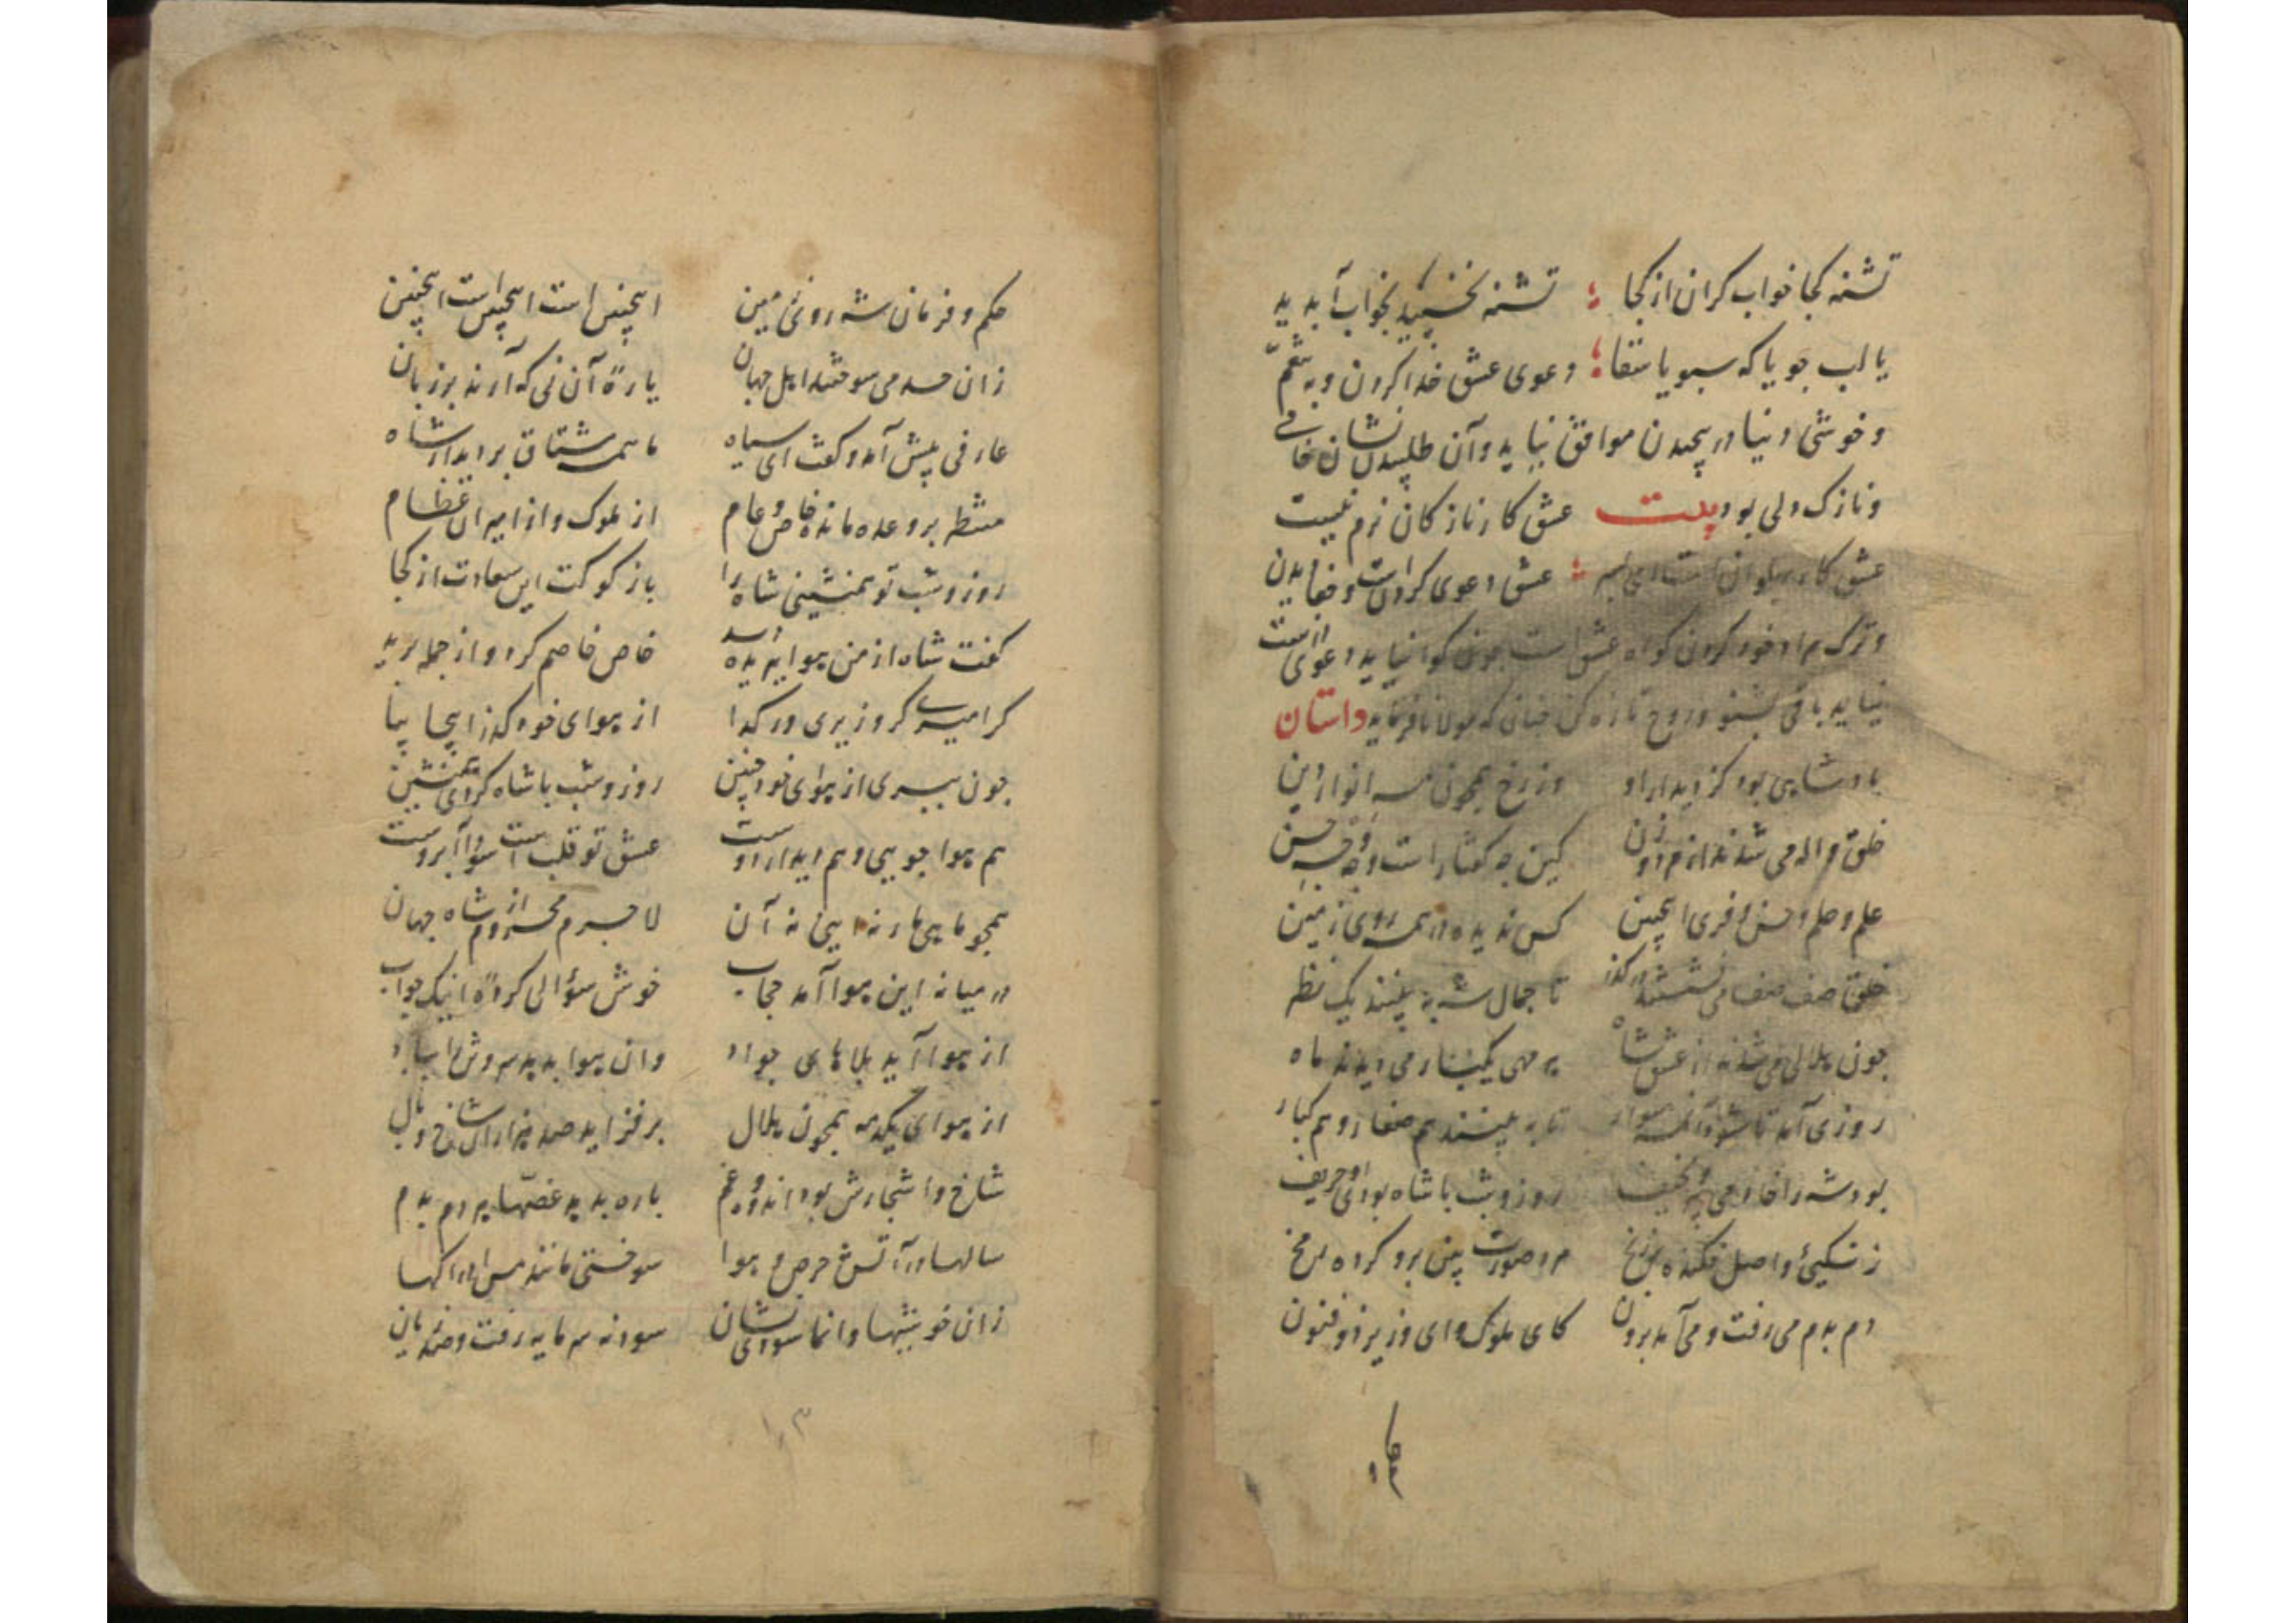 تشنه کجا خواب کران از کجا تشنه نخسپید بخواب آبدید
یا لب جو یا که سبو یا سقا دعوی عشق خدا کردن و به تنعّم
و خوشی دنیا در پیچیدن موافق نیاید و آن طلب نشان خامی
و نازک دلی بود بیت عشق کار نازکان نرم نیست
عشق کار پهلوان است ای پسر عشق دعوی کردن است و جفا دیدن
و ترک مراد خود کردن کواه عشق است چون کوا نیاید دعوی راست
نیاید باقی بشنو و روح تازه کن چنانی که مولانا فرماید داستان
پادشاهی بود کز دیدار او وز رخ همچون مه انوار دین
خلق واله می شدند از مرد و زن کین چه کفتار است و چه وجه حسن
علم و حلم و حسن و فری اینچنین کس ندیده در همه روی زمین
خلق صف صف می نشستند در کذر تا جمال شه ببینند یک نظر
چون هلالی می شدند از عشق شاه بر مهی یکبار می دیدند ماه
روزی آمد تا شود آن شه سوار تا ببینند هم صغار و هم کبار
بود شه را خادمی نحیف روز و شب با شاه بودی او حریف
زنکیئ و اصل فکنده بزنخ مرد صورت بین برو کرده
دم بدم می رفت و می آمد برون کای ملوک و ای وزیر ذو فنون
حکم و فرمان شه روی زمین اینچنین است اینچنین است اینچنین
زان حسد می سوختند اهل جهان یارهٔ آن نی که آرند بر زبان
عارفی پیش آمد و کفت ای سیاه ما همه مشتاق بر دیدار شاه
منتظر بر وعده مانده خاص و عام از ملوک و از امیران عظام
روز و شب تو همنشینی شاه را باز کو کت این سعادت از کجا
کفت شاه از من هوا بد دید خاص خاصم کرد و از جمله برید
کر امیری کر وزیری ور کدا از هوای خود کذر اینجا بیا
چون نبری از هوای خود چنین روز و شب با شاه کردی همنشین
هم هوا جویی و هم دیدار دوست عشق تو قلب است و سؤ آبروست
همچو ماهی مار نه اینی نه آن لاجرم محروم از شاه جهان
در میانه این هوا آمد حجاب خوش سؤالی کردهٔ اینک جواب
از هوا آید بلاهای جواد وان هوا بد بد سروش
از هوای یکدمه همچون هلال بر فزاید صد هزاران شاخ و بال
شاخ و اشجارش بود اندوه و غم باره بدید غصّها بر دم بدم
سالها در آتش حرص و هوا سوختی مانند مس در
زان خوشیها وانما سودی نشان سود نه سرمایه رفت و صد زیان